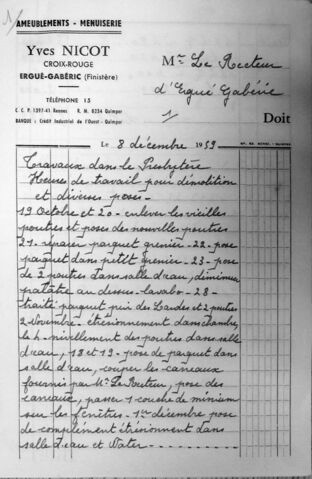 1/
AMEUBLEMENTS - MENUISERIE
Yves NICOT
CROIX-ROUGE
ERGUÉ-GABÉRIC (Finistère)
TÉLÉPHONE 15
C. C. P. 1397-41 Rennes R. M. 6234 Quimper
BANQUE : Crédit Industriel de l'Ouest - Quimper
Mr Le Recteur
d'Ergué Gabéric
1/
Doit
Le 8 décembre 1959
Travaux dans le Presbytère
Heures de travail pour démolition
et diverses poses -
19 Octobre et 20 - enlever les vieilles
poutres et poses des nouvelles poutres
21 - réparer parquet grenier - 22 - pose
parquet dans petit grenier - 23 - pose
de 2 poutres dans salle d'eau, diminue
au dessus - lavabo - 28 -
traité parquet pin des Landes et 2 poutres
2 Novembre - étrésionnement dans chambre,
le 4 - nivellement des poutres dans salle
d'eau, 18 et 19 - pose de parquet dans
salle d'eau, couper les carreaux
fournis par Mr Le Recteur, pose des
carreaux, passer 1 couche de minium
sur les fenêtres - 1er décembre pose
de complément étrésionnement dans
salle d'eau et Water -